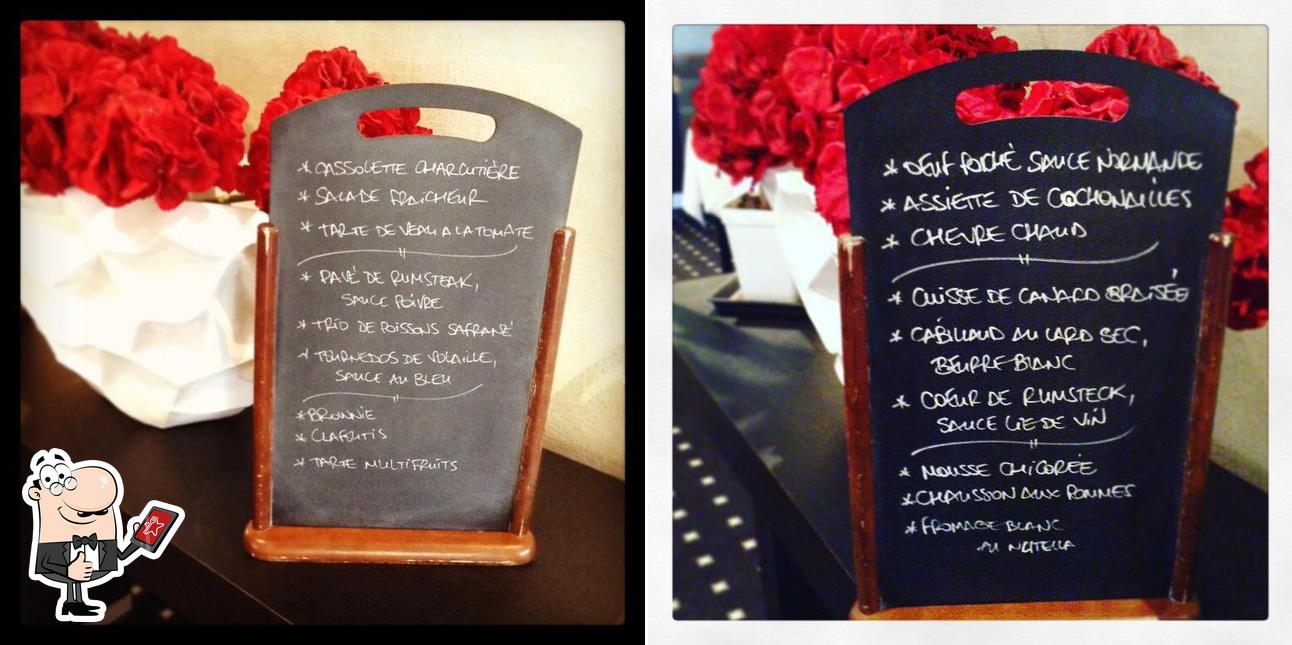 * CASSOLETTE CHARCUTIÈRE
* SALADE FRAÎCHEUR
* TARTE DE VEAU A LA TOMATE
* PAVÉ DE RUMSTEAK,
SAUCE POIVRE
* TRIO DE POISSONS SAFRANÉ
* TOURNEDOS DE VOLAILLE,
SAUCE AU BLEU
* BROWNIE
* CLAFOUTIS
* TARTE MULTIFRUITS
* OEUF POCHÉ SAUCE NORMANDE
* ASSIETTE DE COCHONAILLES
* CHEVRE CHAUD
* CUISSE DE CANARD BRAISÉE
* CABILLAUD AU LARD SEC,
BEURRE BLANC
* COEUR DE RUMSTECK,
SAUCE LIE DE VIN
* MOUSSE CHICORÉE
* CHAUSSON AUX POMMES
* FROMAGE BLANC
AU NUTELLA